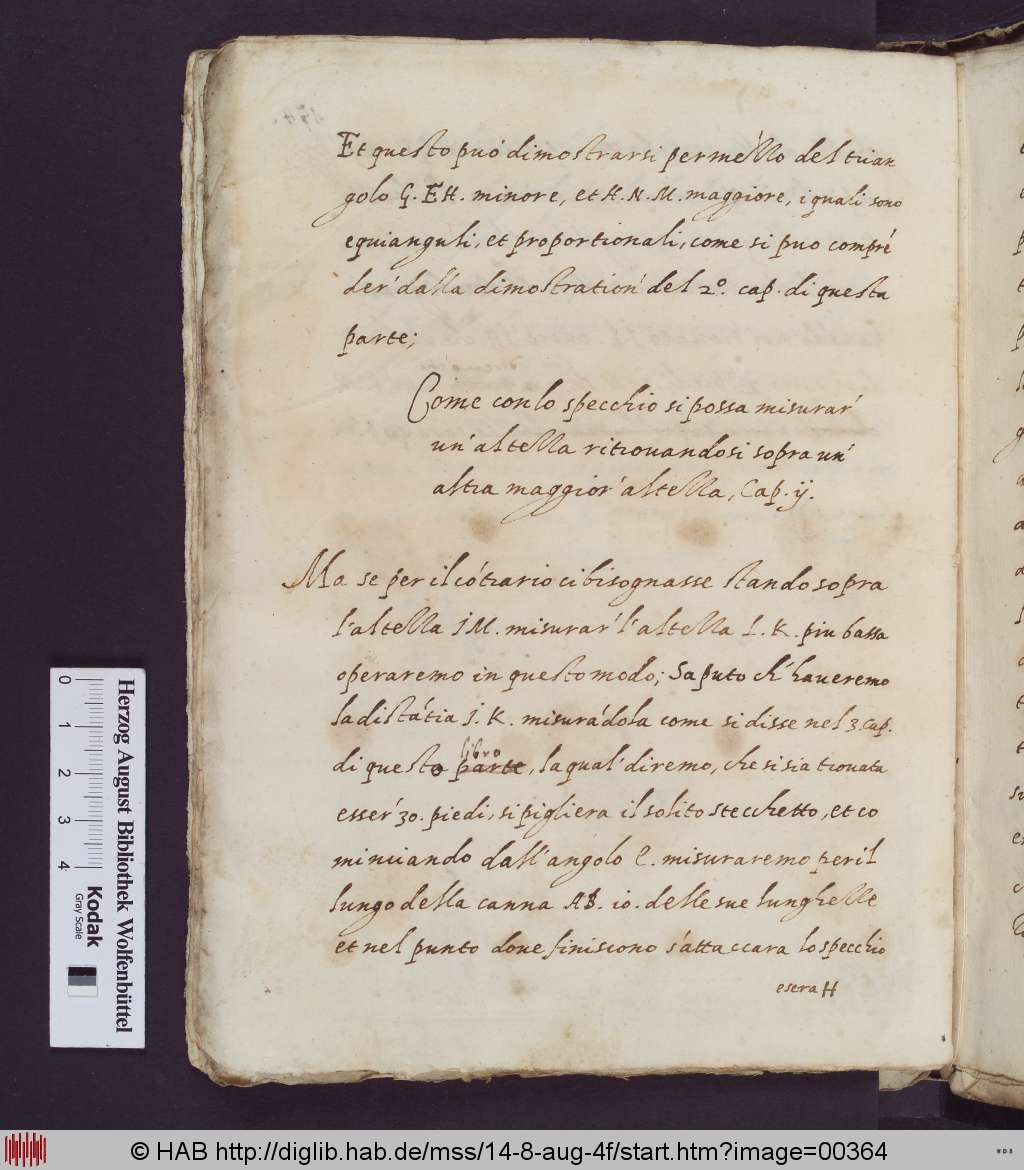 Et questo può dimostrarsi per mezzo del trian
golo G. E H. minore, et H. N. M. maggiore, i quali sono
equianguli, et proportionali, come si puo compré
der' dalla dimostration' del 2º. cap. di questa
parte;
Come con lo specchio si possa misurar'
un' altezza ritrovandosi sopra un'
altra maggior' altezza, Cap. ij.
Ma se per il cótrario ci bisognasse stando sopra
l'altezza I M. misurar' l'altezza L. K. piu bassa
operaremo in questo modo; Saputo ch' haveremo
la distátia I. K. misurádola come si disse nel 3. cap.
libro
di questo parte, la qual' diremo, che si sia trovata
esser' 30. piedi, si pigliera il solito stecchetto, et co
minciando dall' angolo C. misuraremo per il
lungo della canna AB. 10. delle sue lunghezze
et nel punto dove finiscono s'attaccara lo specchio
e sera H
Herzog August Bibliothek Wolfenbüttel
Kodak
Gray Scale
0 1 2 3 4
© HAB http://diglib.hab.de/mss/14-8-aug-4f/start.htm?image=00364